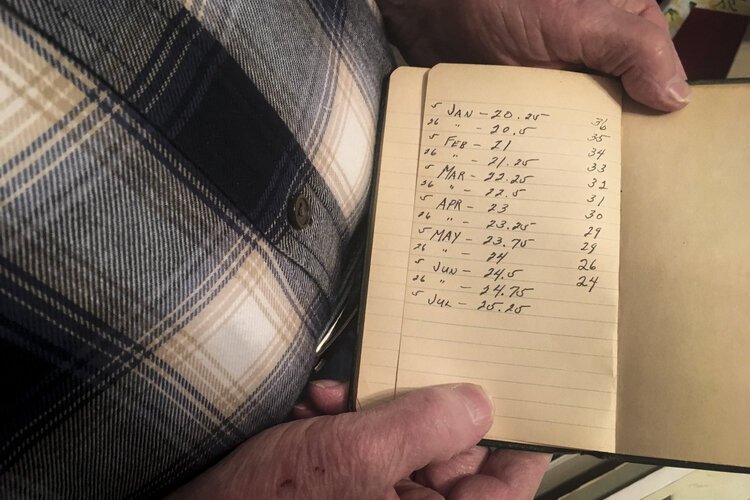 5 JAN - 20.25 36
26 " - 20.5 35
5 FEB - 21 34
26 " - 21.25 33
5 MAR - 22.25 32
26 " - 22.5 31
5 APR - 23 30
26 " - 23.25 29
5 MAY - 23.75 29
26 " - 24 26
5 JUN - 24.5 24
26 " - 24.75
5 JUL - 25.25